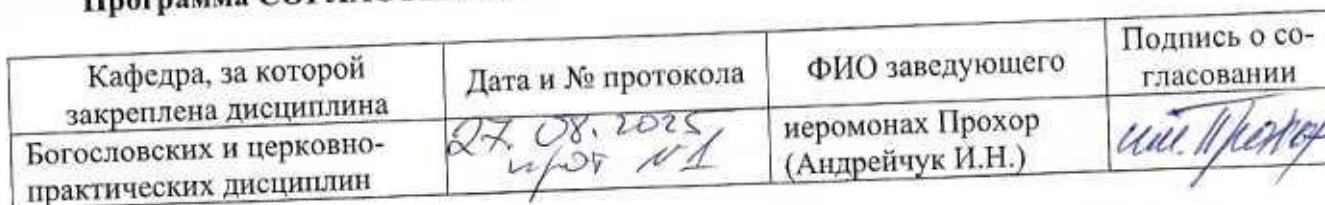 Программа
Кафедра, за которой
закреплена дисциплина
Дата и № протокола
ФИО заведующего
Подпись о со-
гласовании
Богословских и церковно-
практических дисциплин
27. 08. 2025
прот №1
иеромонах Прохор
(Андрейчук И.Н.)
Прохор